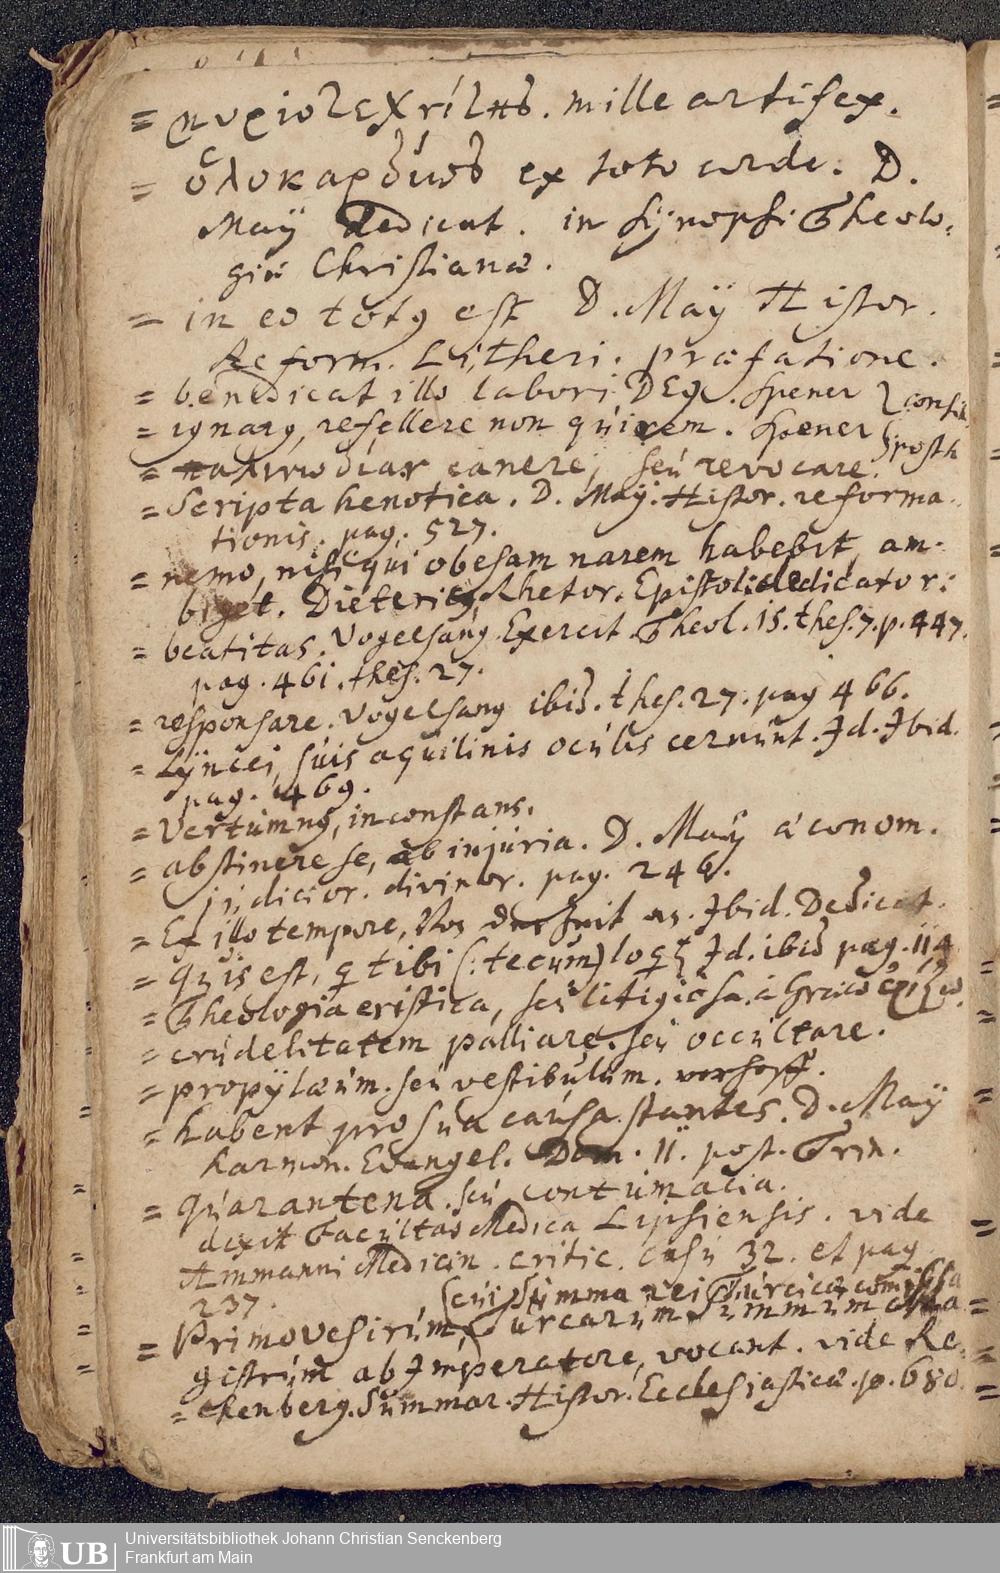 = μυριοτεχνίτης. mille artifex.
= ὁλοκαρδίως ex toto corde. D.
Maÿ dedicat. in sÿnopsi Theolo=
giæ Christianæ.
= in eo totq est D. Maÿ Histor.
Reform. Lutheri. præfatione.
= benedicat illo labori DEq. Spener } consil.
= ignarq, refellere non quirem. Spener } posth
= παλινωδίαν canere, seu revocare.
= Scripta henotica. D. Maÿ. Histor. reforma=
tionis. pag. 527.
= nemo, nisi qui obesam narem habebit, am=
biget. Dietericq, Rhetor. Epistol: dedicator:
= beatitas. Vogelsang. Exercit. Theol. 15. thes. 7. p. 447.
pag. 461. thes. 27.
= responsare. Vogelsang ibid. thes. 27. pag 466.
= Lÿncei, suis aquilinis oculis cernunt. Id. Ibid.
pag. 469.
= Vertumnq, inconstans.
= abstinere se, ab injuria. D. Maÿ œconom.
judicior. divinor. pag. 246.
= Ex illo tempore, Ibid. Dedicat.
= Quis est, q tibi (: tecum) loq Id. ibid pag. 114
= Theologia eristica, seu litigiosa. à Græco ἐρίζω.
= crudelitatem palliare. seu occultare.
= propÿlæum. seu vestibulum. vorhoff.
= habent pro sua causa stantes. D. Maÿ
harmon. Evangel. Dom. 11. post. Trin.
= Quarantena. seu contumacia.
dixit Facultas Medica Lipsiensis. vide
Ammanni Medicin. critic. casu 32. et pag.
237.
(cui Summa rei Turcicæ comissa
= Primo Vesirum, Turcarum Summum
gistrum ab Imperatore, vocant. vide Re=
= chenberg. Summar. Histor. Ecclesiasticæ. p. 680.
UB
Universitätsbibliothek Johann Christian Senckenberg
Frankfurt am Main